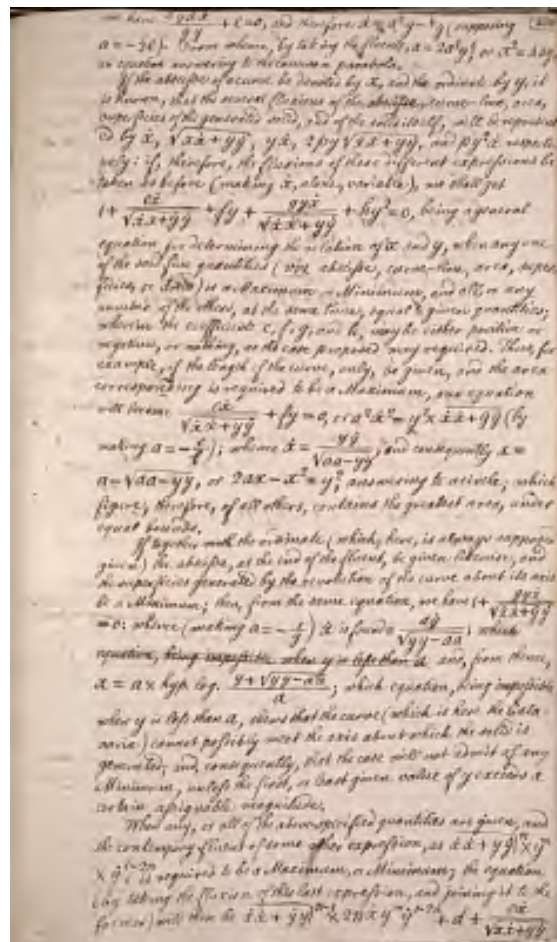 we have gyxx/yy + c = 0, and therefore (supposing
a = -2c). From whence, by taking the fluents, or x² =
an equation answering to the common parabola.
If the abscissa of a curve be denoted by x, and the ordinate by y, it
is known, that the several fluxions of the abscissa, curve-line, area,
superficies of the generated solid, and of the solid itself, will be represent-
ed by ẋ, √ẋẋ+ẏẏ, yẋ, 2py√ẋẋ+ẏẏ, and py²ẋ respecti-
vely: if, therefore, the fluxions of these different expressions be
taken as before (making ẋ, alone, variable), we shall get
1 + eẋ/√ẋẋ+ẏẏ + fy + gyẋ/√ẋẋ+ẏẏ + hy² = 0, being a general
equation for determining the relation of x and y, when any one
of the said five quantities (viz abscissa, curve-line, area, super-
ficies, or solid) is a Maximum or Minimum, and all, or any
number of the others, at the same time, equal to given quantities;
wherein the coefficients e, f, g, and h, may be either positive or
negative, or nothing, as the case proposed may required. Thus, for
example, if the length of the curve, only, be given, and the area
corresponding is required to be a Maximum, our equation
will become eẋ/√ẋẋ+ẏẏ + fy = 0, or a²ẋ² = y² × ẋẋ+ẏẏ (by
making a = -e/f); whence ẋ = yẏ/√aa-yy, and consequently x =
a-√aa-yy, or 2ax-x² = y², answering to a circle; which
figure, therefore, of all others, contains the greatest area, under
equal bounds.
If together with the ordinate (which, here, is always supposed
given) the abscissa, at the end of the fluent, be given likewise, and
the superficies generated by the revolution of the curve about its axis
be a Minimum; then, from the same equation, we have 1 + gyẋ/√ẋẋ+ẏẏ
= 0: whence (making a = -1/g) ẋ is found = aẏ/√yy-aa; which
equation, being impossible when y is less than a and, from thence,
x = a × hyp log. y+√yy-aa/a; which equation, being impossible
when y is less than a, shews that the curve (which is here the Cate-
naria) cannot possibly meet the axis about which the solid is
generated; and, consequently, that the case will not admit of any
Minimum, unless the first, or least given value of y exceeds a
certain assignable magnitude.
When any, or all of the above-specified quantities are given, and
the contemporary fluent of some other expression, as ẋẋ+ẏẏ)ⁿ × yᵐ
× ẏ¹⁻²ⁿ is required to be a Maximum, or Minimum; the equation
(by taking the fluxion of this last expression, and joining it to the
former) will then be ẋẋ+ẏẏ)ⁿ⁻¹ × 2nẋyᵐẏ¹⁻²ⁿ + d + eẋ/√ẋẋ+ẏẏ